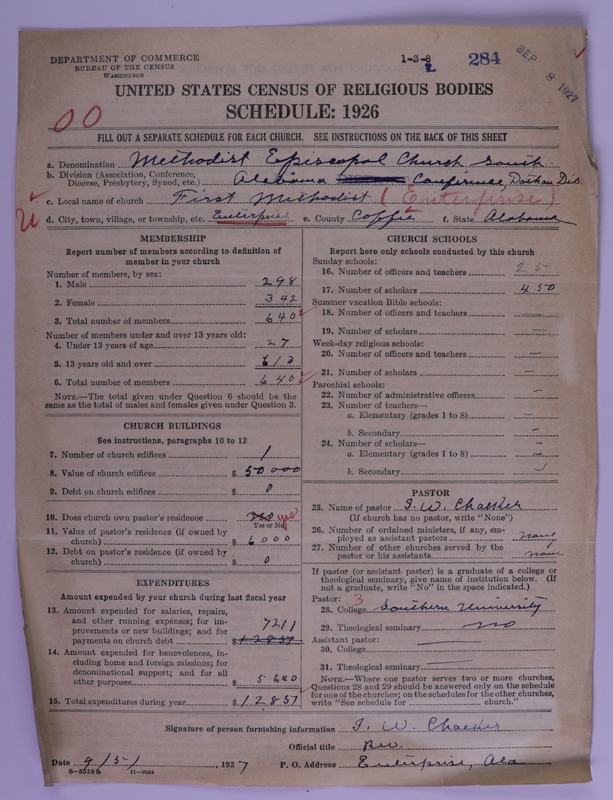 DEPARTMENT OF COMMERCE
BUREAU OF THE CENSUS
WASHINGTON
1-3-8
284
SEP 8 1927
UNITED STATES CENSUS OF RELIGIOUS BODIES
SCHEDULE: 1926
00
FILL OUT A SEPARATE SCHEDULE FOR EACH CHURCH. SEE INSTRUCTIONS ON THE BACK OF THIS SHEET
a. Denomination Methodist Episcopal Church South
b. Division (Association, Conference, Diocese, Presbytery, Synod, etc.) Alabama Conference, Dothan Dis.
c. Local name of church First Methodist (Enterprise)
d. City, town, village, or township, etc. Enterprise e. County Coffee f. State Alabama
MEMBERSHIP
Report number of members according to definition of
member in your church
Number of members, by sex:
1. Male 298
2. Female 342
3. Total number of members 640
Number of members under and over 13 years old:
4. Under 13 years of age 27
5. 13 years old and over 613
6. Total number of members 640
NOTE.—The total given under Question 6 should be
same as the total of males and females given under Question 3.
CHURCH BUILDINGS
See instructions, paragraphs 10 to 12
7. Number of church edifices 1
8. Value of church edifices $ 50000
9. Debt on church edifices $ 0
10. Does church own pastor's residence yes
Yes or No
11. Value of pastor's residence (if owned by
church) $ 6000
12. Debt on pastor's residence (if owned by
church) $ 0
EXPENDITURES
Amount expended by your church during last fiscal year
13. Amount expended for salaries, repairs,
and other running expenses; for im-
provements or new buildings; and for
payments on church debt $ 7211
12857
14. Amount expended for benevolences, in-
cluding home and foreign missions; for
denominational support; and for all
other purposes $ 5640
15. Total expenditures during year $ 12857
CHURCH SCHOOLS
Report here only schools conducted by this church
Sunday schools:
16. Number of officers and teachers 25
17. Number of scholars 450
Summer vacation Bible schools:
18. Number of officers and teachers —
19. Number of scholars —
Week-day religious schools:
20. Number of officers and teachers —
21. Number of scholars —
Parochial schools:
22. Number of administrative officers —
23. Number of teachers—
a. Elementary (grades 1 to 8) —
b. Secondary —
24. Number of scholars—
a. Elementary (grades 1 to 8) —
b. Secondary
PASTOR
25. Name of pastor
(If church has no pastor, write "None")
26. Number of ordained ministers, if any, em-
ployed as assistant pastors none
27. Number of other churches served by the
pastor or his assistants none
If pastor (or assistant pastor) is a graduate of a college or
theological seminary, give name of institution below. (If
not a graduate, write "No" in the space indicated.)
Pastor: 3
28. College Southern University
29. Theological seminary no
Assistant pastor:
30. College
31. Theological seminary
NOTE.—Where one pastor serves two or more churches,
Questions 28 and 29 should be answered only on the schedule
for one of the churches; on the schedules for the other churches,
write "See schedule for church."
Signature of person furnishing information
Official title
Date 9/5/ 1927 P. O. Address Enterprise, Ala
8-5518a 11-9024